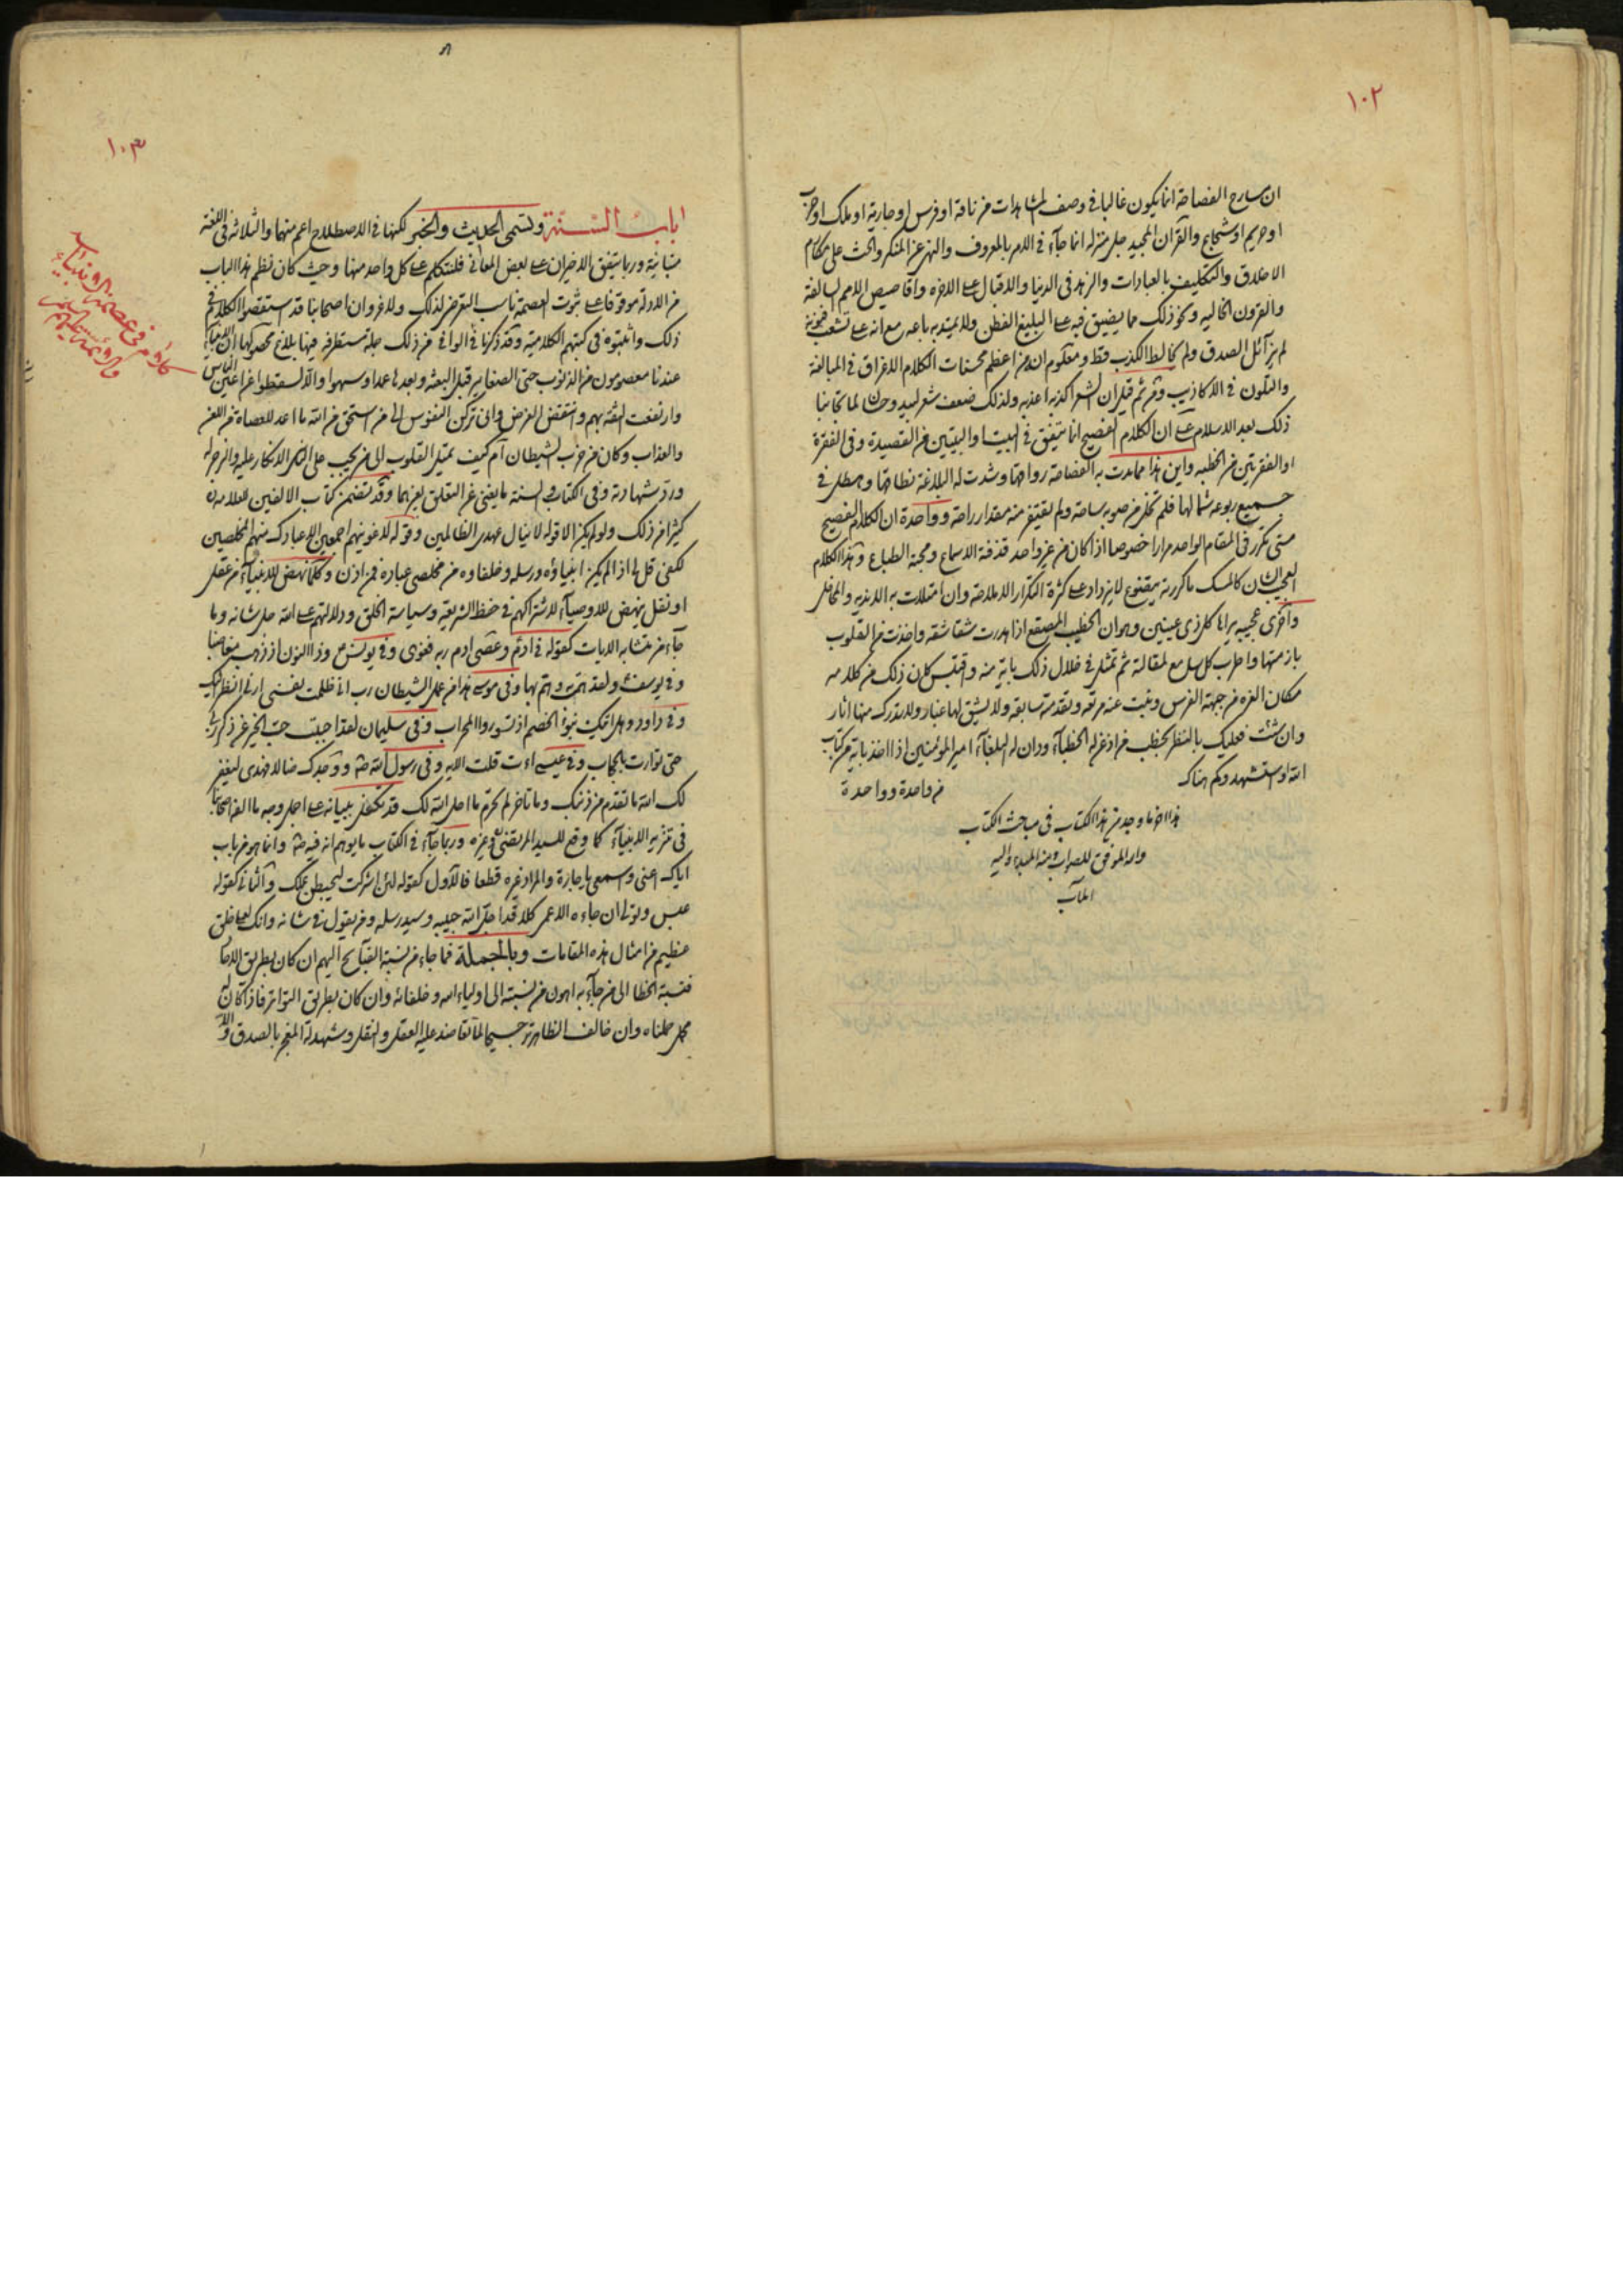 ١٠٢
ان سارح الفصاحة انما يكون غالبا في وصف المشاهدات من ناقة او فرس او جارية او ملك او حرب
او حريم او شجاع والقرآن المجيد جل منزله انما جآء في الامر بالمعروف والنهي عن المنكر والحث على مكارم
الاخلاق والتكليف بالعبادات والزهد في الدنيا والاقبال على الاخرة واقاصيص الامم السالفة
والقرون الخالية ونحو ذلك مما يضيق فيه على البليغ الفطن ولا يمتد به باعه مع انه على تشعب فنونه
لم يزآئل الصدق ولم يخالط الكذب قط ومعلوم ان من اعظم محسنات الكلام الاغراق في المبالغة
والتلون في الاكاذيب ومن ثم قيل ان الشعر اكذبه اعذبه ولذلك ضعف شعر لبيد وحسان لما تجانبا
ذلك بعد الاسلام على ان الكلام الفصيح انما يتفق في البيت والبيتين من القصيدة وفي الفقرة
او الفقرتين من الخطبه واين هذا مما مدت به الفصاحة رواقها وشدت له البلاغة نطاقها وهطل في
جميع ربوعه شمالها فلم تخل من صوبه ساحة ولم يفتقر منه مقدار راحة وواحدة ان الكلام الفصيح
متى تكرر في المقام الواحد مرارا خصوصا اذا كان من غير واحد قذفته الاسماع ومجته الطباع وهذا الكلام
العجيب الشان كالمسك ما كررته يتضوع لا يزداد على كثرة التكرار الا حلاوة وان امتلات به الاندية والمحافل
واخرى عجيبه يراها كل ذي عينين وهو ان الخطيب المصقع اذا هدرت شقاشقه واخذت من القلوب
بازمتها واطرب كل سامع لمقالة ثم تمثل في خلال ذلك باية منه واقتبس كان ذلك من كلامه
مكان الغرة من جبهة الفرس ونبت عنه مرقه وتقدمته سابقه ولا يشق لها غبار ولا يدرك منها اثار
وان شئت فعليك بالنظر لخطب من اذعن له الخطبآء ودان له البلغآء امير المؤمنين اذا اخذ باية من كتاب
الله او استشهد وكم هناك
من واحدة وواحدة
هذا اخر ما وجد من هذا الكتاب في مباحث الكتاب
والله الموفق للصواب ومنه المبدء واليه
المآب
١٠٣
باب السنة وتسمى الحديث والخبر لكنها في الاصطلاح اعم منهما والثلاثة في اللغة
متباينة وربما يتفق الاخيران على بعض المعاني فلنتكلم على كل واحد منها وحيث كان نظم هذا الباب
من الادلة موقوفا على ثبوت العصمة ناسب التعرض لذلك ولا غرو وان اصحابنا قد استقصوا الكلام في
ذلك واثبتوه في كتبهم الكلامية وقد ذكرنا في الوافي من ذلك جملة مستطرفه فيها بلاغ محصولها ان الانبيآء
عندنا معصومون من الذنوب حتى الصغاير قبل البعثه وبعدها عمدا وسهوا والا لسقطوا من اعين الناس
وارتفعت الثقة بهم وانتقض الغرض وانى تركن النفوس الى من استحق من الله ما اعد للعصاة من اللعن
والعذاب وكان من حزب الشيطان ام كيف تميل القلوب الى من يجب على الناس الانكار عليه والزجر له
ورد شهادته وفي الكتاب والسنة ما يغني عن التعلق بغيرهما وقد تضمن كتاب الالفين للعلامه
كثيرا من ذلك ولو لم يكن الا قوله لا ينال عهدي الظالمين وقوله لاغوينهم اجمعين الا عبادك منهم المخلصين
لكفى قل لي اذا لم يكن انبياؤه ورسله وخلفاوه من مخلصي عباده فمن اذن وكلما نهض للانبيآء من عقل
او نقل ينهض للاوصيآء لاشتراكهم في حفظ الشريعة وسياسة الخلق ودلالتهم على الله جل شانه وما
جآء من متشابه الايات كقوله في ادم وعصى ادم ربه فغوى وفي يونس وذا النون اذ ذهب مغاضبا
وفي يوسف ولقد همت به وهم بها وفي موسى هذا من عمل الشيطان رب اني ظلمت نفسي ارني انظر اليك
وفي داود وهل اتيك نبؤ الخصم اذ تسوروا المحراب وفي سليمان لقد احببت حب الخير عن ذكر ربي
حتى توارت بالحجاب وفي عيسى اءنت قلت الايه وفي رسول الله ص ووجدك ضالا فهدى ليغفر
لك الله ما تقدم من ذنبك وما تاخر لم تحرم ما احل الله لك قد تكفل ببيانه على اجمل وجه ما الفه اصحابنا
في تنزيه الانبيآء كما وقع للسيد المرتضى وغيره وربما جآء في الكتاب ما يوهم انه فيه ص وانما هو من باب
اياك اعني واسمعي يا جارة والمراد غيره قطعا فالاول كقوله لئن اشركت ليحبطن عملك والثاني كقوله
عبس وتولى ان جاءه الاعمى كلا قد اجل الله حبيبه وسيد رسله ومن يقول في شانه وانك لعلى خلق
عظيم من امثال هذه المقامات وبالجملة فما جاء من نسبة القبآيح اليهم ان كان بطريق الاحاد
فنسبة الخطا الى من جآء به اهون من نسبته الى اولياء الله وخلفائه وان كان بطريق التواتر فاذا كان له
محمل حملناه وان خالف الظاهر ترجيحا لما تعاضد عليه العقل والنقل وشهد له المعجز بالصدق والا
كلام في عصمة الانبياء
والائمة عليهم السلام